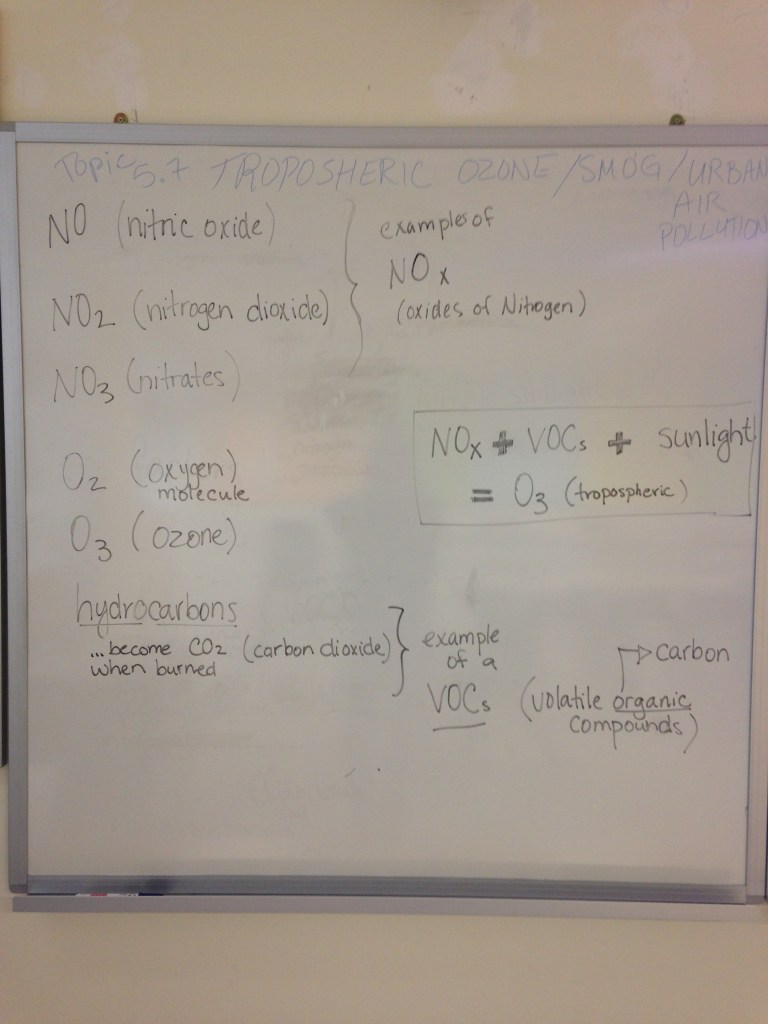 Topic 5.7 TROPOSHERIC OZONE/SMOG/URBAN
AIR
POLLUTION
NO (nitric oxide)
NO₂ (nitrogen dioxide)
NO₃ (nitrates)
examples of
NOx
(oxides of Nitrogen)
O₂ (oxygen)
molecule
O₃ (ozone)
NOx + VOCs + sunlight
= O₃ (tropospheric)
hydrocarbons
...become CO₂ (carbon dioxide)
when burned
example
of a
VOCs (volatile organic
compounds)
carbon